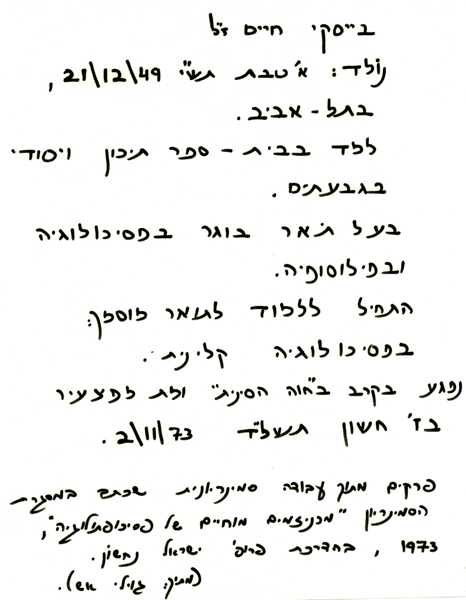 בייסקי חיים ז"ל
נולד: א' טבת תש"י 21/12/49,
בתל-אביב.
למד בבית-ספר תיכון ויסודי
בגבעתיים.
בעל תואר בוגר בפסיכולוגיה
ובפילוסופיה.
התחיל ללמוד לתואר מוסמך:
בפסיכולוגיה קלינית.
נפגע בקרב ב"חוה הסינית" ומת לפצעיו
בז' חשון תשל"ד 2/11/73.
פרקים מתוך עבודה סמינריונית שכתב במסגרת
הסמינריון "מכניזמים מוחיים של פסיכופתולוגיה",
1973, בהדרכת פרופ' ישראל נחשון.
(מתוך: גוילי אש).